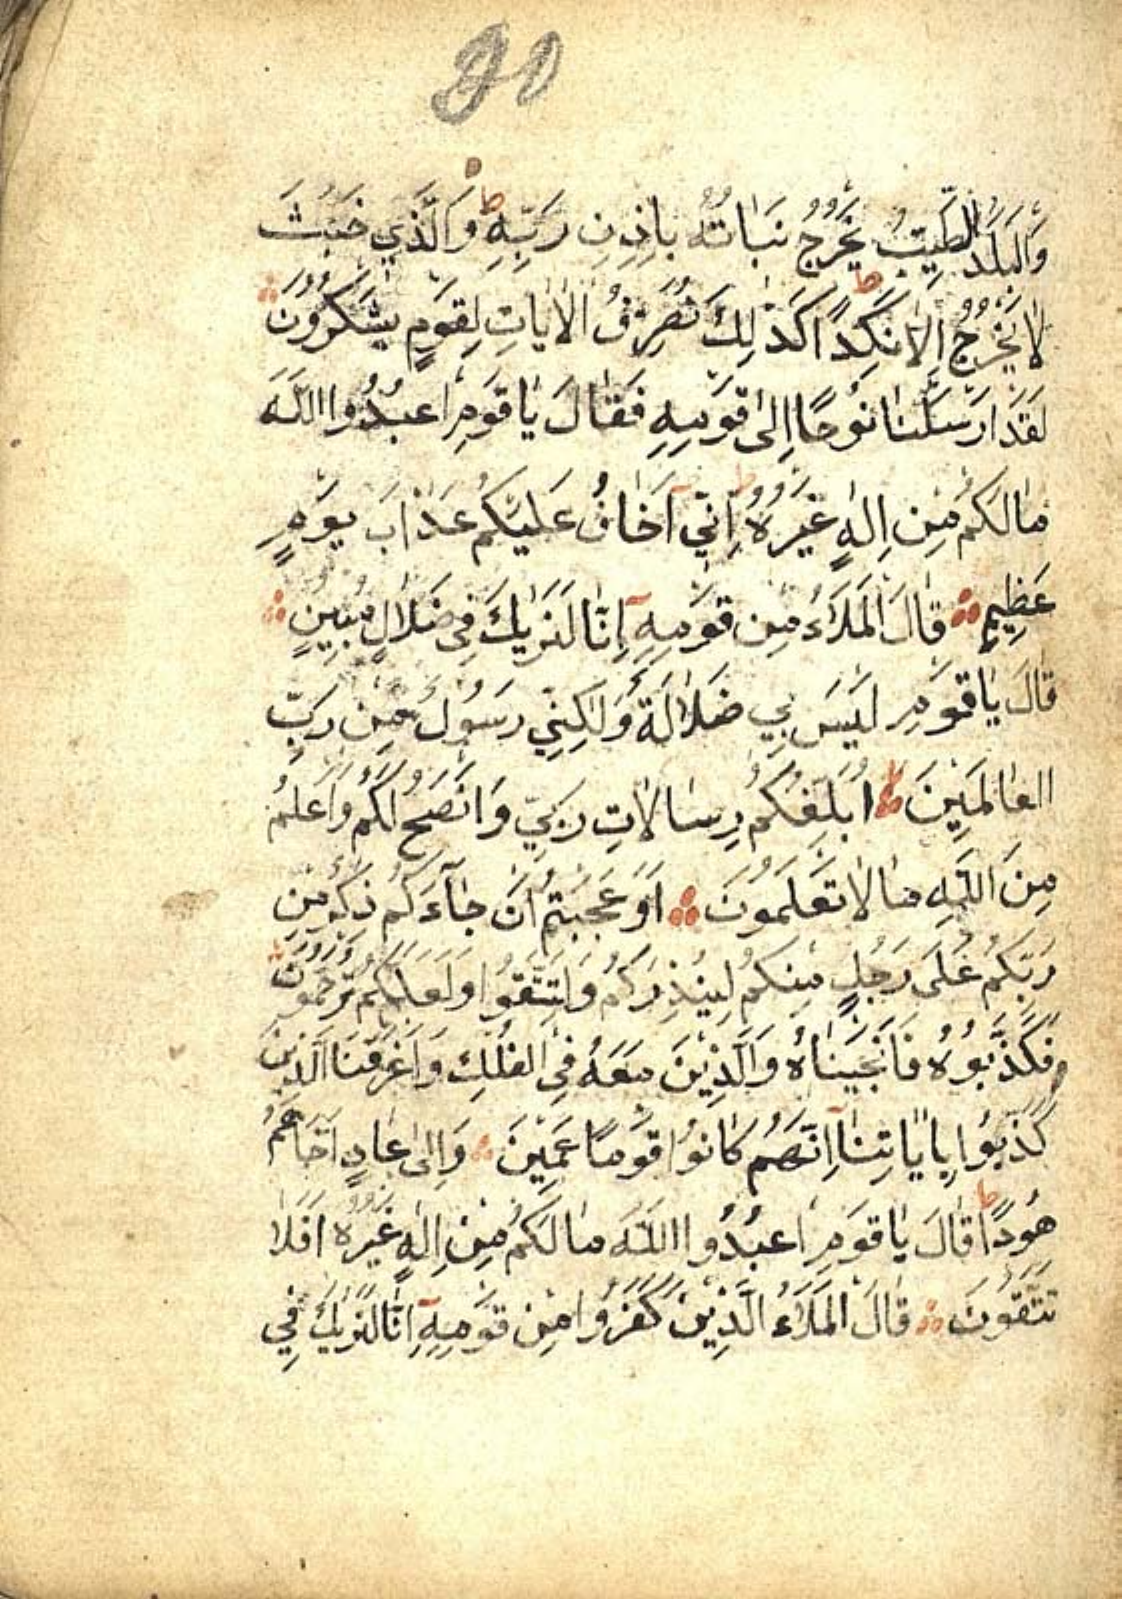 90
وَالْبَلَدُ الطَّيِّبُ يَخْرُجُ نَبَاتُهُ بِاِذْنِ رَبِّهِ ط وَالَّذِي خَبُثَ
لَا يَخْرُجُ اِلَّا نَكِدًا ط كَذٰلِكَ نُصَرِّفُ الْاٰيَاتِ لِقَوْمٍ يَشْكُرُونَ
لَقَدْ اَرْسَلْنَا نُوحًا اِلٰى قَوْمِهِ فَقَالَ يَا قَوْمِ اعْبُدُوا اللّٰهَ
مَا لَكُمْ مِنْ اِلٰهٍ غَيْرُهُ ط اِنِّي اَخَافُ عَلَيْكُمْ عَذَابَ يَوْمٍ
عَظِيمٍ قَالَ الْمَلَاءُ مِنْ قَوْمِهِ اِنَّا لَنَرٰيكَ فِي ضَلَالٍ مُبِينٍ
قَالَ يَا قَوْمِ لَيْسَ بِي ضَلَالَةٌ وَلٰكِنِّي رَسُولٌ مِنْ رَبِّ
الْعَالَمِينَ اُبَلِّغُكُمْ رِسَالَاتِ رَبِّي وَاَنْصَحُ لَكُمْ وَاَعْلَمُ
مِنَ اللّٰهِ مَا لَا تَعْلَمُونَ اَوَعَجِبْتُمْ اَنْ جَآءَكُمْ ذِكْرٌ مِنْ
رَبِّكُمْ عَلٰى رَجُلٍ مِنْكُمْ لِيُنْذِرَكُمْ وَلِتَتَّقُوا وَلَعَلَّكُمْ تُرْحَمُونَ
فَكَذَّبُوهُ فَاَنْجَيْنَاهُ وَالَّذِينَ مَعَهُ فِي الْفُلْكِ وَاَغْرَقْنَا الَّذِينَ
كَذَّبُوا بِاٰيَاتِنَا اِنَّهُمْ كَانُوا قَوْمًا عَمِينَ وَاِلٰى عَادٍ اَخَاهُمْ
هُودًا ط قَالَ يَا قَوْمِ اعْبُدُوا اللّٰهَ مَا لَكُمْ مِنْ اِلٰهٍ غَيْرُهُ اَفَلَا
تَتَّقُونَ قَالَ الْمَلَاءُ الَّذِينَ كَفَرُوا مِنْ قَوْمِهِ اِنَّا لَنَرٰيكَ فِي